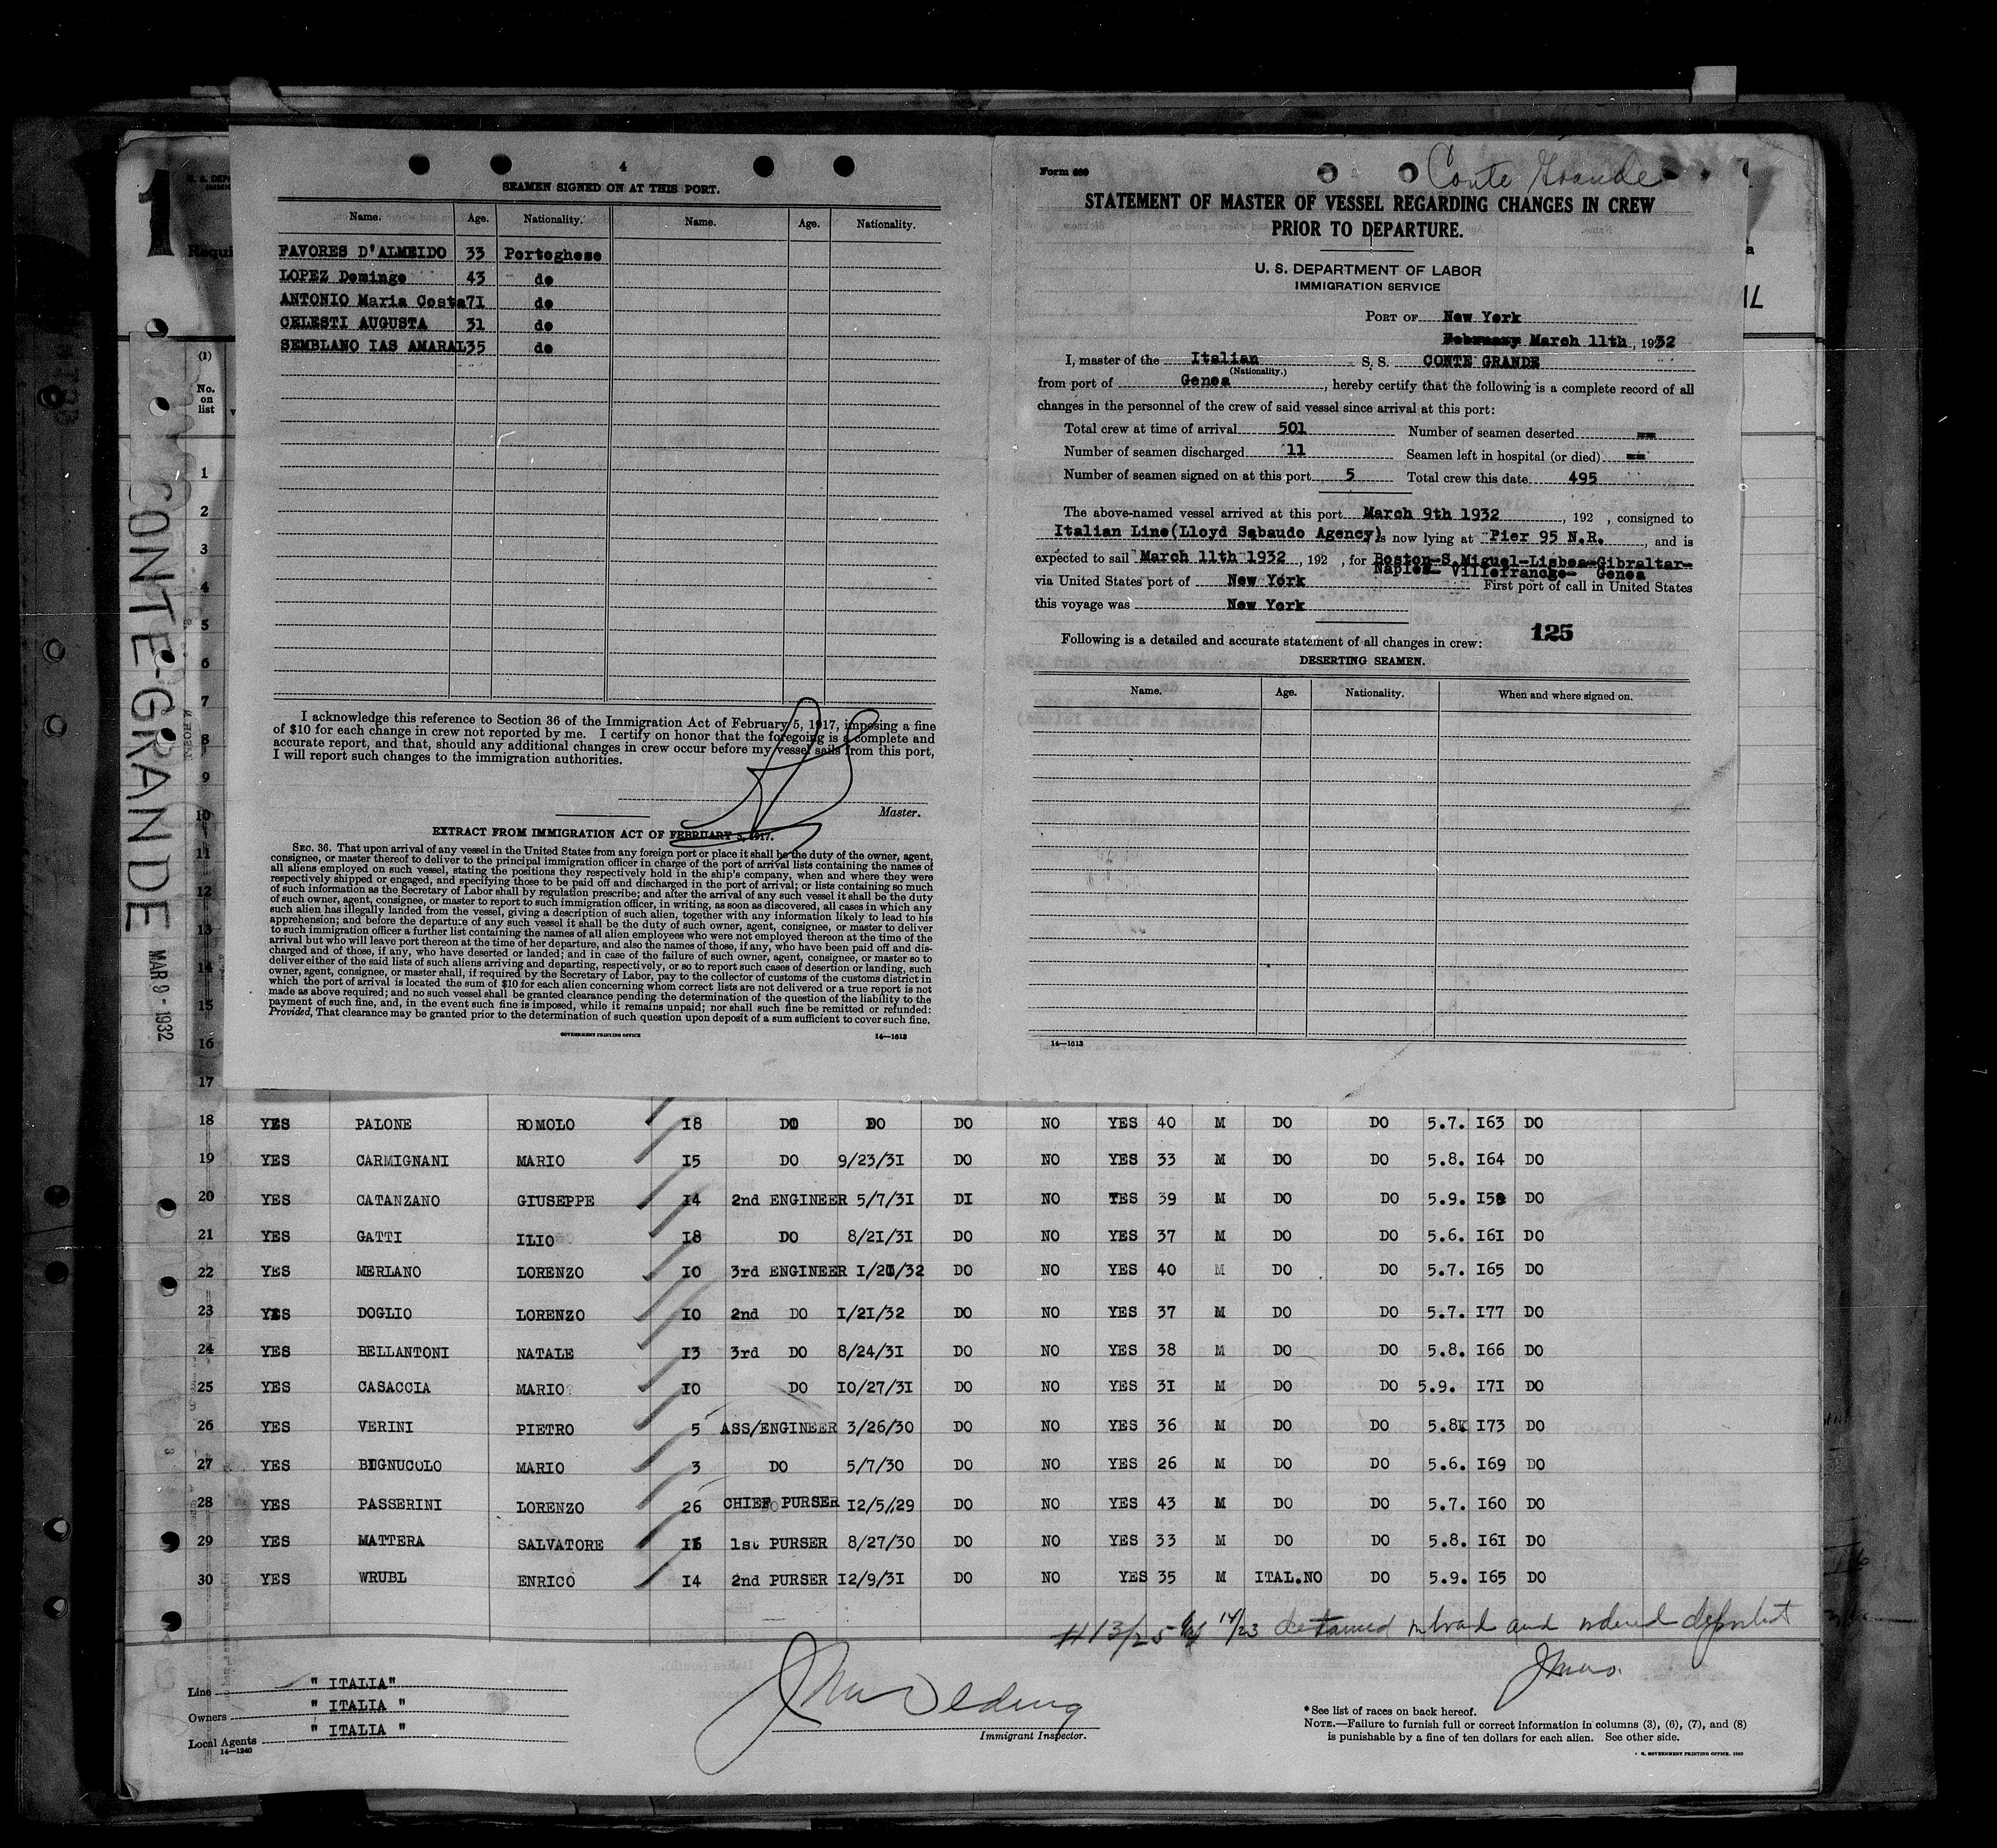 4
SEAMEN SIGNED ON AT THIS PORT.
Name. Age. Nationality. Name. Age. Nationality.
FAVORES D'ALMEIDO 33 Porteghese
LOPEZ Domingo 43 do
ANTONIO Maria Costa 71 do
CELESTI AUGUSTA 31 do
SEMBLANO IAS AMARAL 35 do
I acknowledge this reference to Section 36 of the Immigration Act of February 5, 1917, imposing a fine
of $10 for each change in crew not reported by me. I certify on honor that the foregoing is a complete and
accurate report, and that, should any additional changes in crew occur before my vessel sails from this port,
I will report such changes to the immigration authorities.
Master.
EXTRACT FROM IMMIGRATION ACT OF FEBRUARY 5, 1917.
SEC. 36. That upon arrival of any vessel in the United States from any foreign port or place it shall be the duty of the owner, agent,
consignee, or master thereof to deliver to the principal immigration officer in charge of the port of arrival lists containing the names of
all aliens employed on such vessel, stating the positions they respectively hold in the ship's company, when and where they were
respectively shipped or engaged, and specifying those to be paid off and discharged in the port of arrival; or lists containing so much
of such information as the Secretary of Labor shall by regulation prescribe; and after the arrival of any such vessel it shall be the duty
of such owner, agent, consignee, or master to report to such immigration officer, in writing, as soon as discovered, all cases in which any
such alien has illegally landed from the vessel, giving a description of such alien, together with any information likely to lead to his
apprehension; and before the departure of any such vessel it shall be the duty of such owner, agent, consignee, or master to deliver
to such immigration officer a further list containing the names of all alien employees who were not employed thereon at the time of the
arrival but who will leave port thereon at the time of her departure, and also the names of those, if any, who have been paid off and dis-
charged and of those, if any, who have deserted or landed; and in case of the failure of such owner, agent, consignee, or master so to
deliver either of the said lists of such aliens arriving and departing, respectively, or so to report such cases of desertion or landing, such
owner, agent, consignee, or master shall, if required by the Secretary of Labor, pay to the collector of customs of the customs district in
which the port of arrival is located the sum of $10 for each alien concerning whom correct lists are not delivered or a true report is not
made as above required; and no such vessel shall be granted clearance pending the determination of the question of the liability to the
payment of such fine, and, in the event such fine is imposed, while it remains unpaid; nor shall such fine be remitted or refunded:
Provided, That clearance may be granted prior to the determination of such question upon deposit of a sum sufficient to cover such fine.
GOVERNMENT PRINTING OFFICE 14—1613
Form 689
Conte Grande
STATEMENT OF MASTER OF VESSEL REGARDING CHANGES IN CREW
PRIOR TO DEPARTURE.
U. S. DEPARTMENT OF LABOR
IMMIGRATION SERVICE
PORT OF New York
March 11th, 1932
I, master of the Italian S. S. CONTE GRANDE
(Nationality.)
from port of Genoa, hereby certify that the following is a complete record of all
changes in the personnel of the crew of said vessel since arrival at this port:
Total crew at time of arrival 501 Number of seamen deserted --
Number of seamen discharged 11 Seamen left in hospital (or died) --
Number of seamen signed on at this port 5 Total crew this date 495
The above-named vessel arrived at this port March 9th 1932, 192 , consigned to
Italian Line(Lloyd Sabaudo Agency) is now lying at Pier 95 N.R., and is
expected to sail March 11th 1932, 192 , for Boston-S.Miguel-Lisboa-Gibraltar-
Naples- Villefranche- Genoa
via United States port of New York First port of call in United States
this voyage was New York
Following is a detailed and accurate statement of all changes in crew: 125
DESERTING SEAMEN.
Name. Age. Nationality. When and where signed on.
14—1613
1
CONTE-GRANDE MAR 9 - 1932
(1)
No.
on
list
1
2
3
4
5
6
7
8
9
10
11
12
13
14
15
16
17
18 YES PALONE ROMOLO I8 DO DO DO NO YES 40 M DO DO 5.7. I63 DO
19 YES CARMIGNANI MARIO I5 DO 9/23/3I DO NO YES 33 M DO DO 5.8. I64 DO
20 YES CATANZANO GIUSEPPE I4 2nd ENGINEER 5/7/3I DI NO YES 39 M DO DO 5.9. DO
21 YES GATTI ILIO I8 DO 8/2I/3I DO NO YES 37 M DO DO 5.6. I6I DO
22 YES MERLANO LORENZO I0 3rd ENGINEER DO NO YES 40 M DO DO 5.7. I65 DO
23 YES DOGLIO LORENZO I0 2nd DO I/2I/32 DO NO YES 37 M DO DO 5.7. I77 DO
24 YES BELLANTONI NATALE I3 3rd DO 8/24/3I DO NO YES 38 M DO DO 5.8. I66 DO
25 YES CASACCIA MARIO I0 DO I0/27/3I DO NO YES 3I M DO DO 5.9. I7I DO
26 YES VERINI PIETRO 5 ASS/ENGINEER 3/26/30 DO NO YES 36 M DO DO 5.8 I73 DO
27 YES BIGNUCOLO MARIO 3 DO 5/7/30 DO NO YES 26 M DO DO 5.6. I69 DO
28 YES PASSERINI LORENZO 26 CHIEF PURSER I2/5/29 DO NO YES 43 M DO DO 5.7. I60 DO
29 YES MATTERA SALVATORE 1st PURSER 8/27/30 DO NO YES 33 M DO DO 5.8. I6I DO
30 YES WRUBL ENRICO I4 2nd PURSER I2/9/3I DO NO YES 35 M ITAL.NO DO 5.9. I65 DO
#13/25 14/23 detained on board and ordered deported
Line " ITALIA"
Owners " ITALIA "
Local Agents " ITALIA "
14—1240
Immigrant Inspector.
*See list of races on back hereof.
NOTE.—Failure to furnish full or correct information in columns (3), (6), (7), and (8)
is punishable by a fine of ten dollars for each alien. See other side.